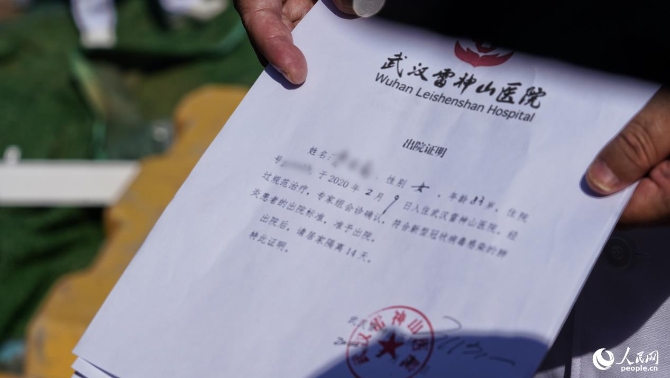 武汉雷神山医院
Wuhan Leishenshan Hospital
出院证明
姓名: 性别 女，年龄 83 岁，住院
号 ，于 2020 年 2 月 9 日入住武汉雷神山医院，经
过规范治疗，专家组会诊确认，符合新型冠状病毒感染的肺
炎患者的出院标准，准予出院。
出院后，请居家隔离 14 天。
特此证明。
人民网
people.cn